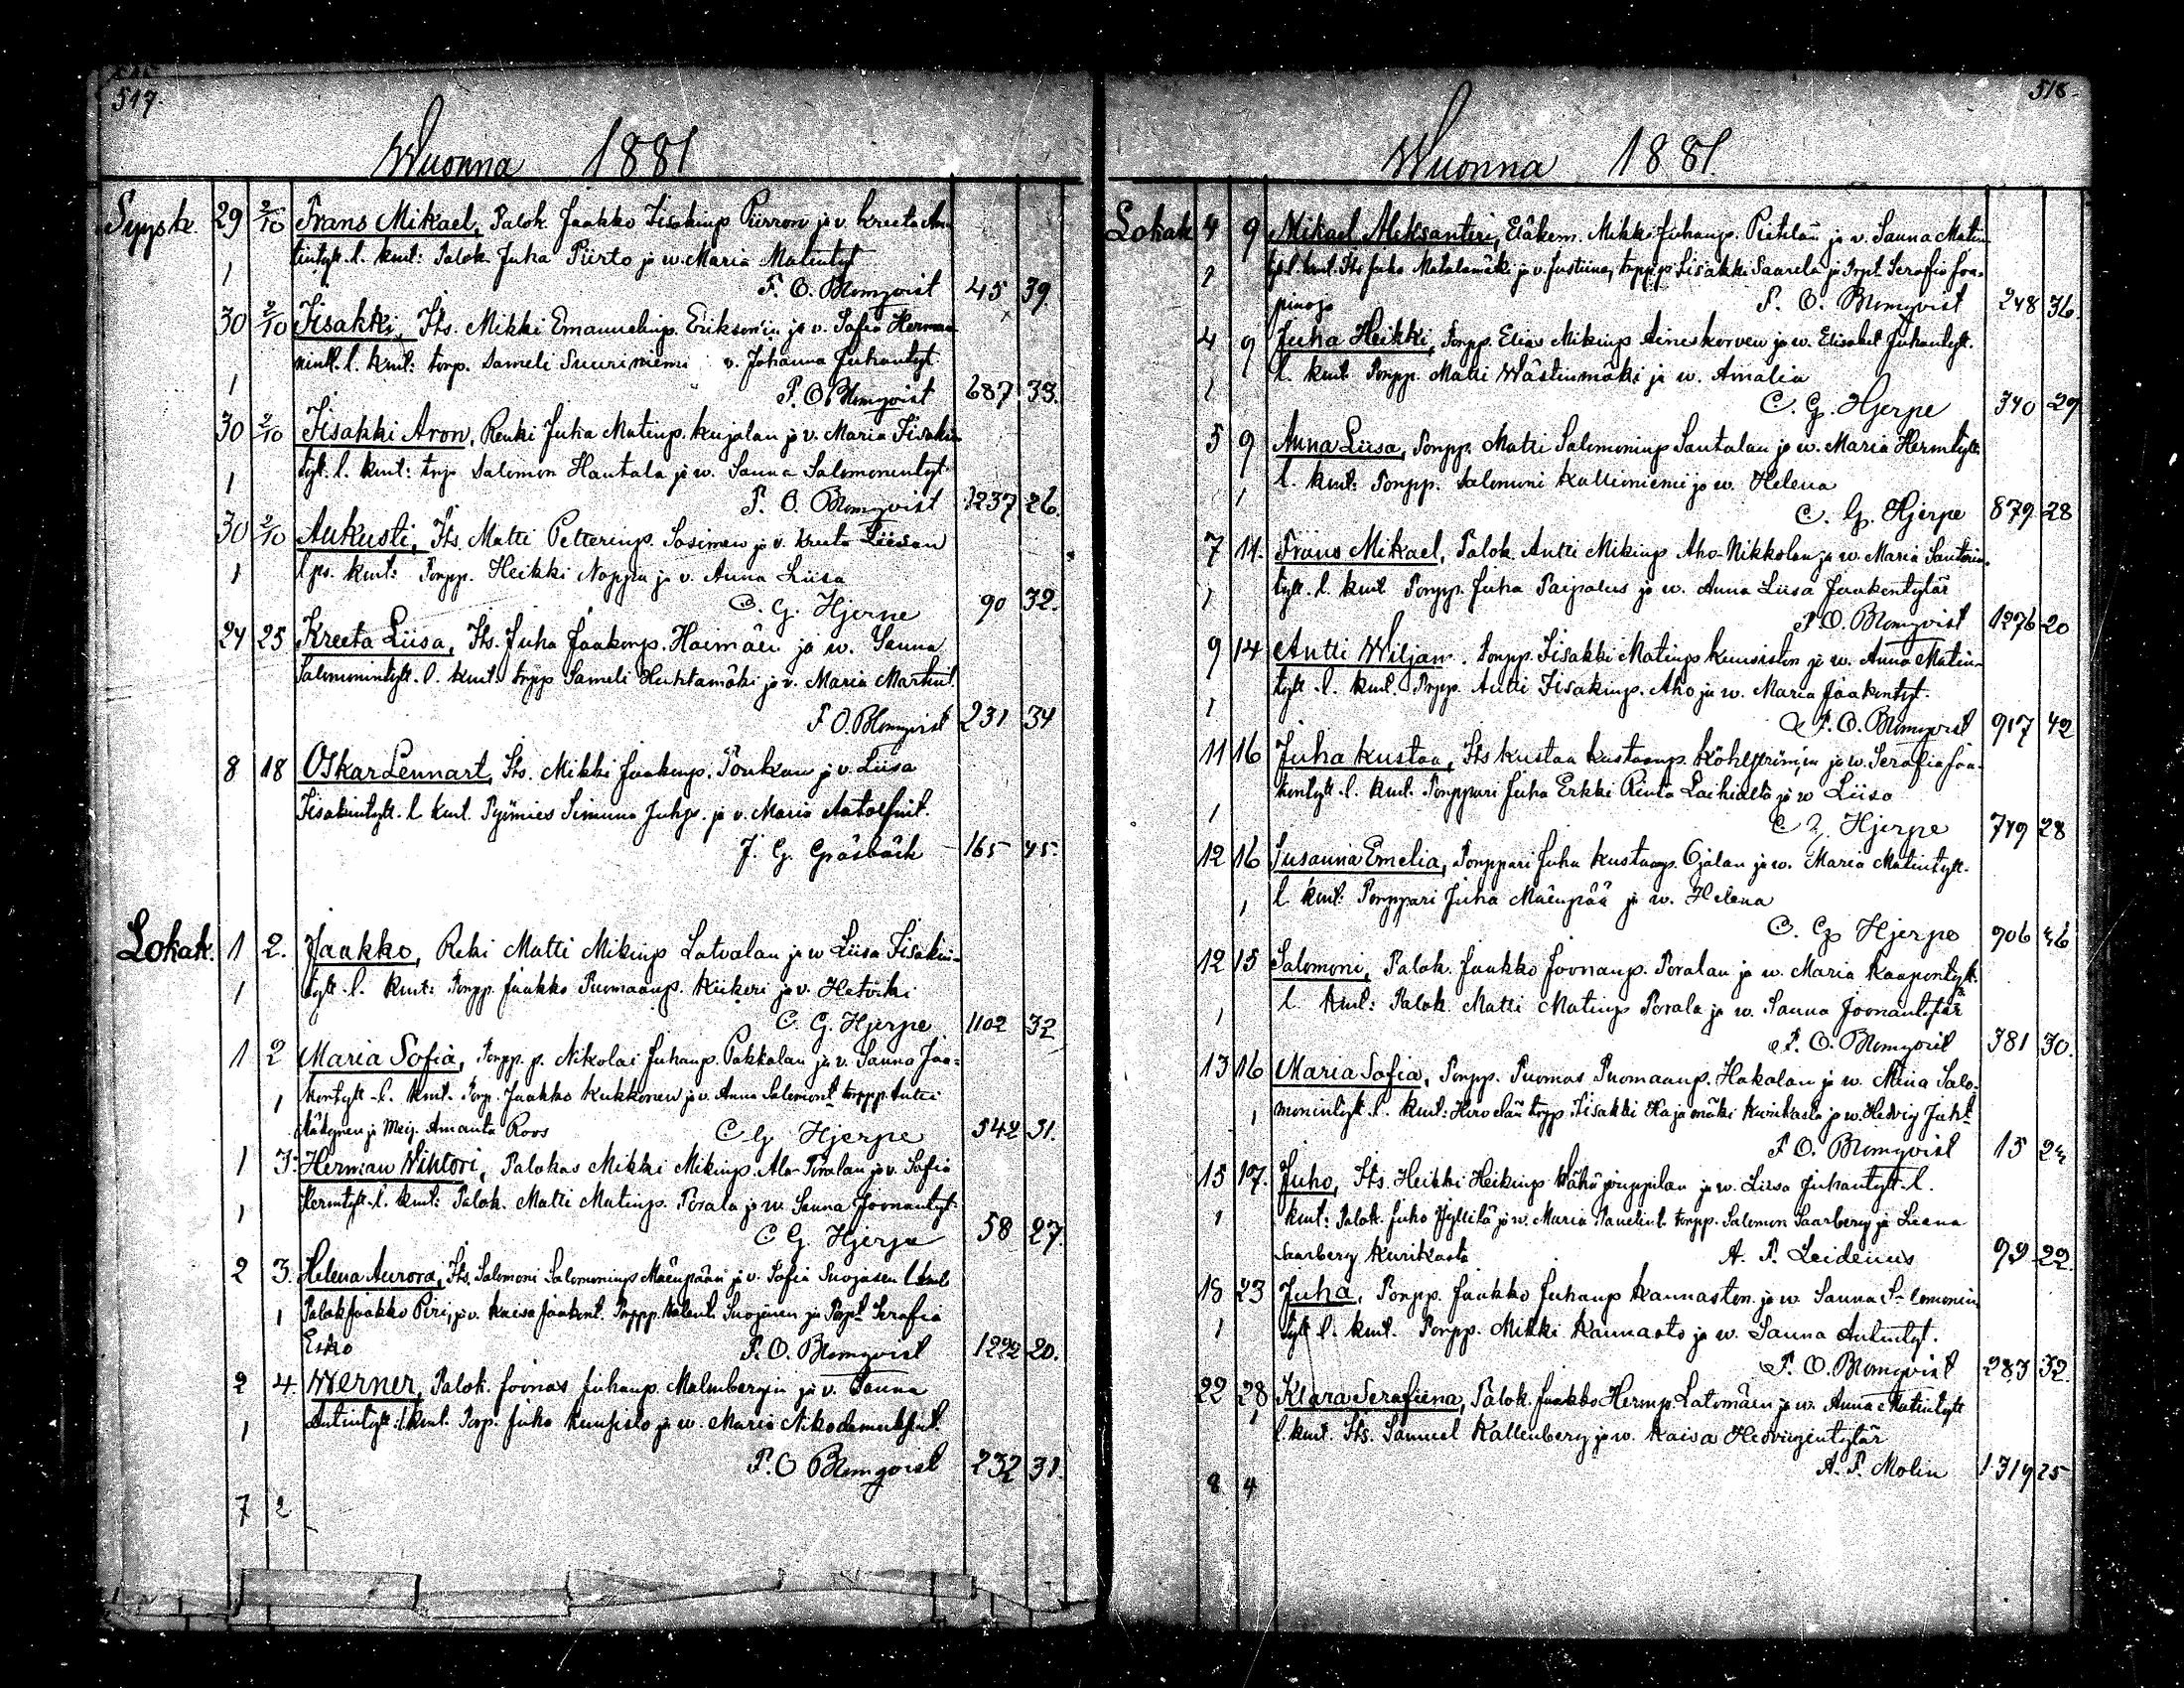 517.
Wuonna 1881
Syysk. 29 2/10 Frans Mikael, Palok. Jaakko Iisakinp. Piirron ja v. Kreeta An-
1 tintytt. l. kml: Palok. Juha Piirto ja w. Maria Matintyt
F. O. Blomqvist 45 39
30 2/10 Iisakki, Its. Mikki Emanuelinp. Eriksonin ja v. Sofia Herman
nintt. l. kml: torp. Sameli Suuriniemi v. Johanna Juhantyt
1 F. O. Blomqvist 687 33.
30 2/10 Iisakki Aron, Renki Juha Matinp. Kujalan ja v. Maria Iisakin
1 tyt. l. kml: trp Salomon Hautala ja w. Sanna Salomonintyt
F. O. Blomqvist 1237 26.
30 2/10 Aukusti, Its. Matti Petterinp. Sosimen ja v. Kreeta Liisan
1 lps. kml: Torpp. Heikki Noppa ja v. Anna Liisa
C. G. Hjerpe 90 32.
24 25 Kreeta Liisa, Its. Juha Jaakonp. Haimäen ja w. Sanna
Salomonintytt. l. kml. trpp Sameli Huhtamäki ja v. Maria Martint.
F O. Blomqvist 231 34
8 18 Oskar Lennart, Its. Mikki Jaakonp. Poukan ja v. Liisa
Iisakintytt. l. kml. Työmies Simuna Juhp. ja v. Maria Aatolfint.
J. G. Gräsbäck 165 45.
Lokak. 1 2. Jaakko, Reki Matti Mikinp Latvalan ja w Liisa Iisakin-
1 tytt. l. kml: Torpp. Jaakko Tuomaanp. Kiikeri ja v. Hetvikki
C. G. Hjerpe 1102 32
1 2 Maria Sofia, Torpp. p. Nikolai Juhanp. Pakkalan ja v. Sanna Jaa-
1 kontytt. l. kml. Torp. Jaakko Kukkonen ja v. Anna Salomont torppp. Antti
ja Meij. Amanta Roos C G Hjerpe 542 31.
1 3. Herman Wihtori, Palokas Mikki Mikinp. Ala-Poralan ja v. Sofia
1 Hermtytt. l. kml: Palok. Matti Matinp. Porala ja w. Sanna Joonantyt
C G. Hjerpe 58 27.
2 3. Helena Aurora, Its. Salomoni Salomoninp Mäenpään ja v. Sofia Suojasen l kml
1 Palok Jaakko Piri, ja v. Kaisa Jaakont. Torpp. Valent. Suojanen ja Torpt. Serafia
Esko F. O. Blomqvist 1292 20.
2 4. Werner, Palok. Joonas Juhanp. Malmbergin ja v. Sanna
1 Antintytt. l kml. Torp. Juho Kuusisto ja w. Maria Nikodemuksint.
F. O Blomqvist 232 31.
7 2
518
Wuonna 1881.
Lokak 4 9 Mikael Aleksanteri, Eläkem. Mikki Juhanp. Pietilän ja v. Sanna Matin
1 tyt l. kml. Its Juho Matalamäki ja v. Justiina, torpp.p Iisakki Saarela ja Torpt. Serafia Joa-
pinoja F. O. Blomqvist 248 36.
4 9 Juha Heikki, Torpp. Elias Mikinp Aineskorven ja w. Elisabet Juhantytt.
1 l. kml. Torpp. Matti Wästinmäki ja w. Amalia
C. G. Hjerpe 340 29
5 9 Anna Liisa, Torpp. Matti Salomoninp Santalan ja w. Maria Hermtytt.
1 l. kml: Torpp. Salomoni Kallioniemi ja w. Helena
C. G. Hjerpe 879 28
7 14. Frans Mikael, Palok. Antti Mikinp Aho-Nikkolan ja w. Maria Santerin-
1 tytt. l. kml Torpp. Juha Paipalus ja w. Anna Liisa Jaakontytär
F. O. Blomqvist 1276 20
9 14 Antti Wiljam. Torpp. Iisakki Matinp Kuusiston ja w. Anna Matin-
1 tytt. l. kml. Torpp. Antti Iisakinp. Aho ja w. Maria Jaakontyt.
F. O. Blomqvist 917 42
11 16 Juha Kustaa, Its Kustaa Kustaanp. Köhlströmin ja w. Serafia Jaa-
1 kontytt. l. kml. Torppari Juha Erkki Rinta Laihialta ja w Liisa
C G. Hjerpe 749 28
12 16 Susanna Emelia, Torppari Juha Kustaanp. Ojalan ja w. Maria Matintytt.
1 l. kml: Torppari Juha Mäenpää ja w. Helena
C. G. Hjerpe 906 46
12 15 Salomoni, Palok. Jaakko Joonanp. Poralan ja w. Maria Kaapontytt.
1 l. kml: Palok. Matti Matinp Porala ja w. Sanna Joonantytär
F. O. Blomqvist 381 30.
13 16 Maria Sofia, Torpp. Tuomas Tuomaanp. Hakalan ja w. Miina Salo-
1 monintytt. l. kml: trpp. Iisakki Hajamäki Kurikasta ja w. Hedvig Juht
F O. Blomqvist 15 24
15 17. Juho, Its. Heikki Heikinp Wähäjouppilan ja w. Liisa Juhantytt. l.
1 kml: Palok. Juho Hyllilä ja w. Maria Taavelint. torpp. Salomon Saarberg ja Leena
Saarberg Kurikasta A. P. Leidenius 99 22.
18 23 Juha, Torpp. Jaakko Juhanp Kannaston ja w. Sanna Salomonin
1 tytt l. kml. Torpp. Mikki Kannasto ja w. Sanna Antintyt.
F. O. Blomqvist 283 32.
22 28 Klara Serafiina, Palok. Jaakko Hermp. Latomäen ja w. Anna Matintytt
1 l. kml. Its. Samuel Kallenberg ja w. Kaisa Hedvigintytär
A. P. Molin 1319 25
8 4